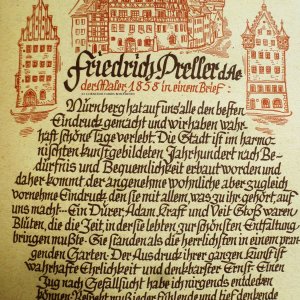 Friedrich Preller d. Ae
der Maler 1858 in einem Brief:
Nürnberg hat auf uns alle den besten
Eindruck gemacht und wir haben wahr-
haft schöne Tage verlebt. Die Stadt ist im harmo
nischsten kunstgebildeten Jahrhundert nach Be-
dürfnis und Bequemlichkeit erbaut worden und
daher kommt der angenehme wohnliche aber zugleich
vornehme Eindruck, den sie mit allem, was zu ihr gehört, auf
uns macht-. Ein Dürer, Adam Kraft und Veit Stoß waren
Blüten, die die Zeit, in der sie lebten, zur schönsten Entfaltung
bringen mußte. Sie standen als die herrlichsten in einem pran-
genden Garten. Der Ausdruck ihrer ganzen Kunst ist
wahrhafte Ehrlichkeit und denkbarster Ernst. Einen
Zug nach Gefallsucht habe ich nirgends entdecken
können. Respekt muß jeder fühlende und